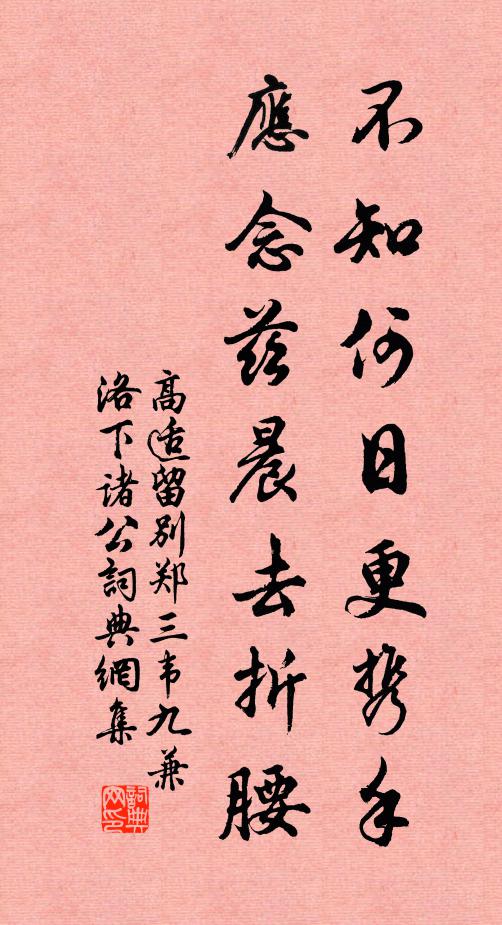 不知何日更携手
應念茲晨去折腰
高适留別郑三韦九兼
洛下诸公詞典網集
詞典
网印